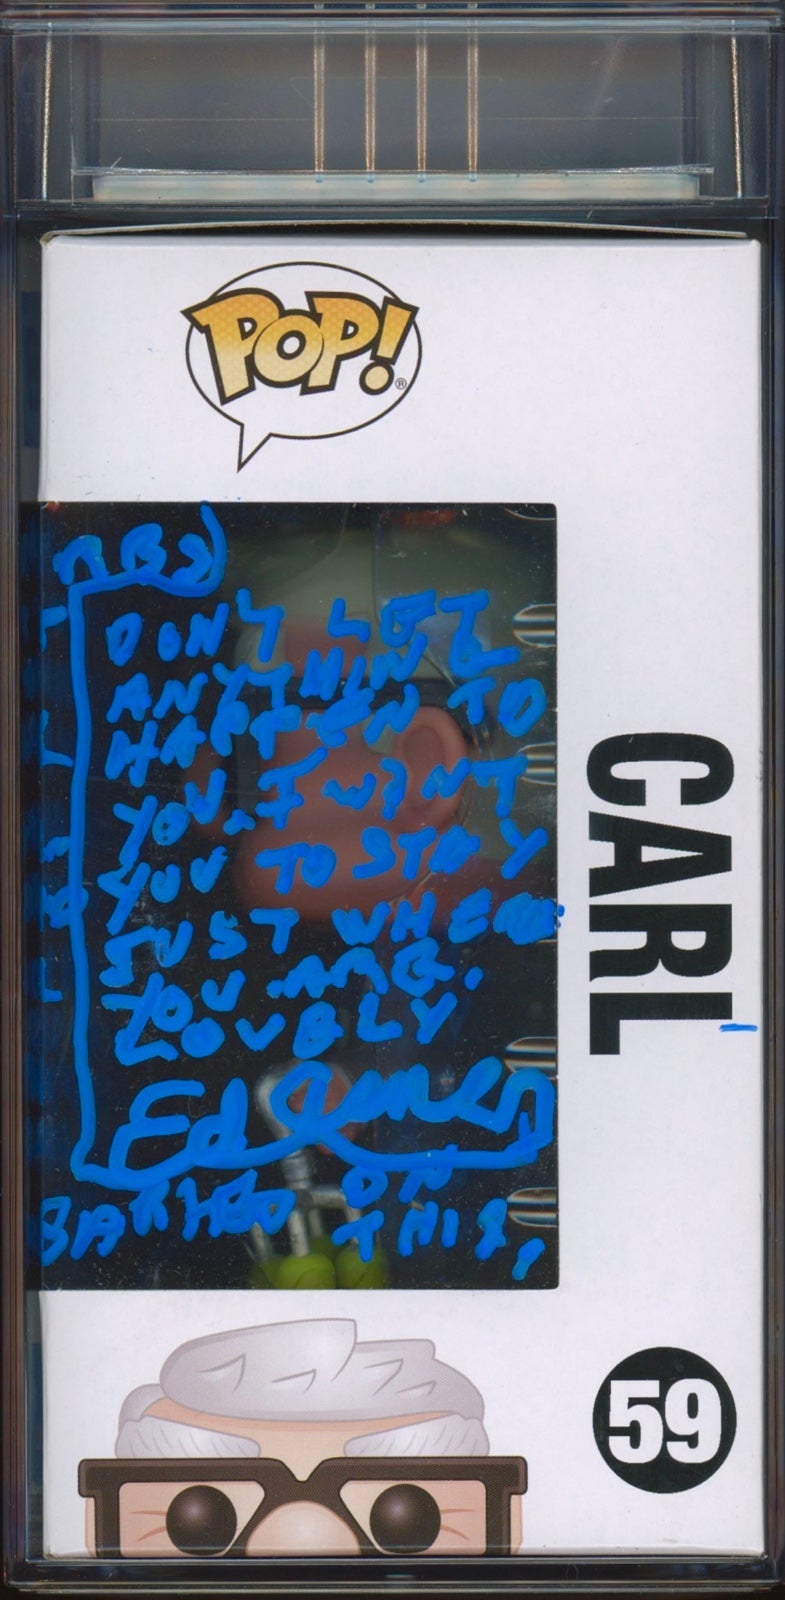 POP!®
DON'T LET
ANYTHING
HAPPEN TO
YOU, I WANT
YOU TO STAY
JUST WHERE
YOU ARE.
LOVELY
Ed Asner
BASED ON
THIS,
CARL
59